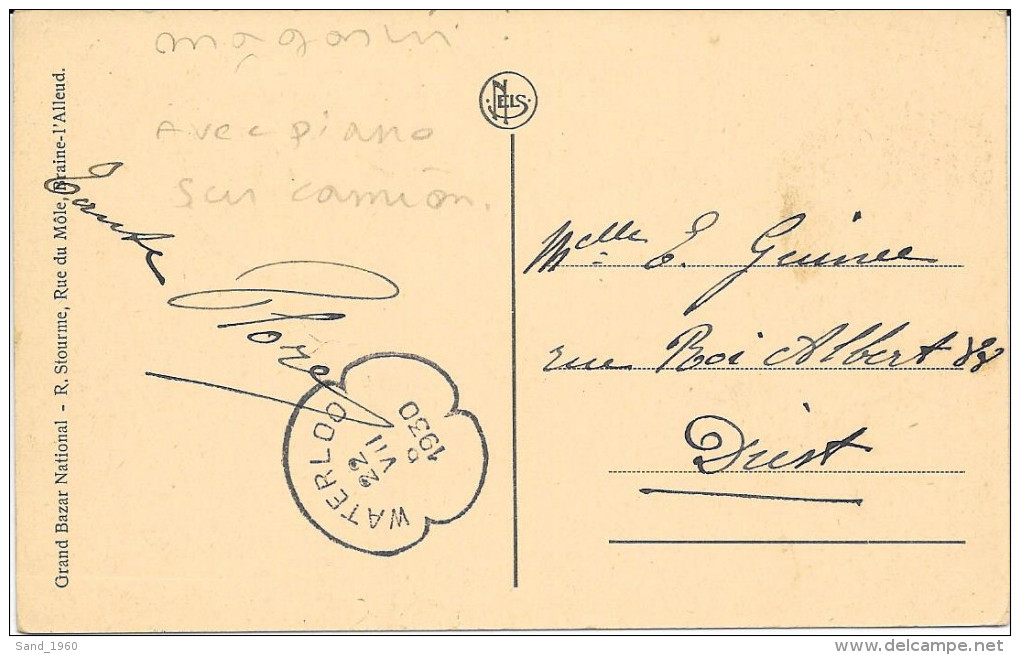 magasin
avec piano
sur camion.
NELS
Grand Bazar National - R. Stourme, Rue du Môle, Braine-l'Alleud.
Tante
WATERLOO
22
VII
1930
Melle E. Guinee
rue Roi Albert
Diest
Sand_1960
www.delcampe.net